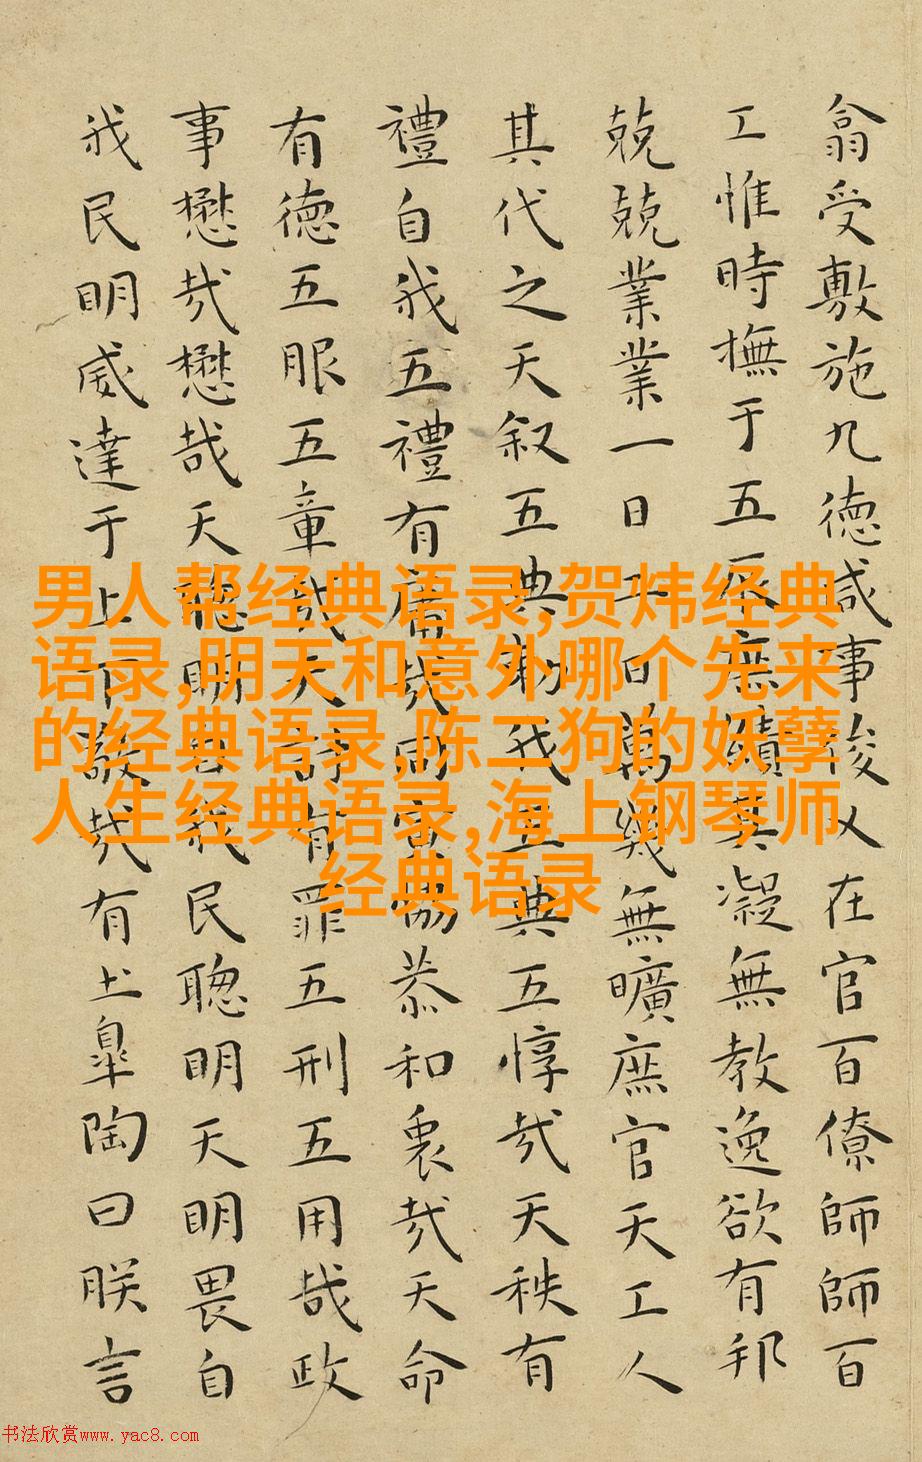 翕受敷施九德咸事俊乂在官百僚師師百
工惟時撫于五辰庶績其凝無教逸欲有邦
兢兢業業一日二日萬幾無曠庶官天工人
其代之天叙五典勑我五典五惇哉天秩有
禮自我五禮有庸哉同寅協恭和衷哉天命
有德五服五章哉天討有罪五刑五用哉政
事懋哉懋哉天聰明自我民聰明天明畏自
我民明威達于上下敬哉有土皋陶曰朕言
男人帮经典语录,贺炜经典
语录,明天和意外哪个先来
的经典语录,陈二狗的妖孽
人生经典语录,海上钢琴师
经典语录
书法欣赏www.yac8.com